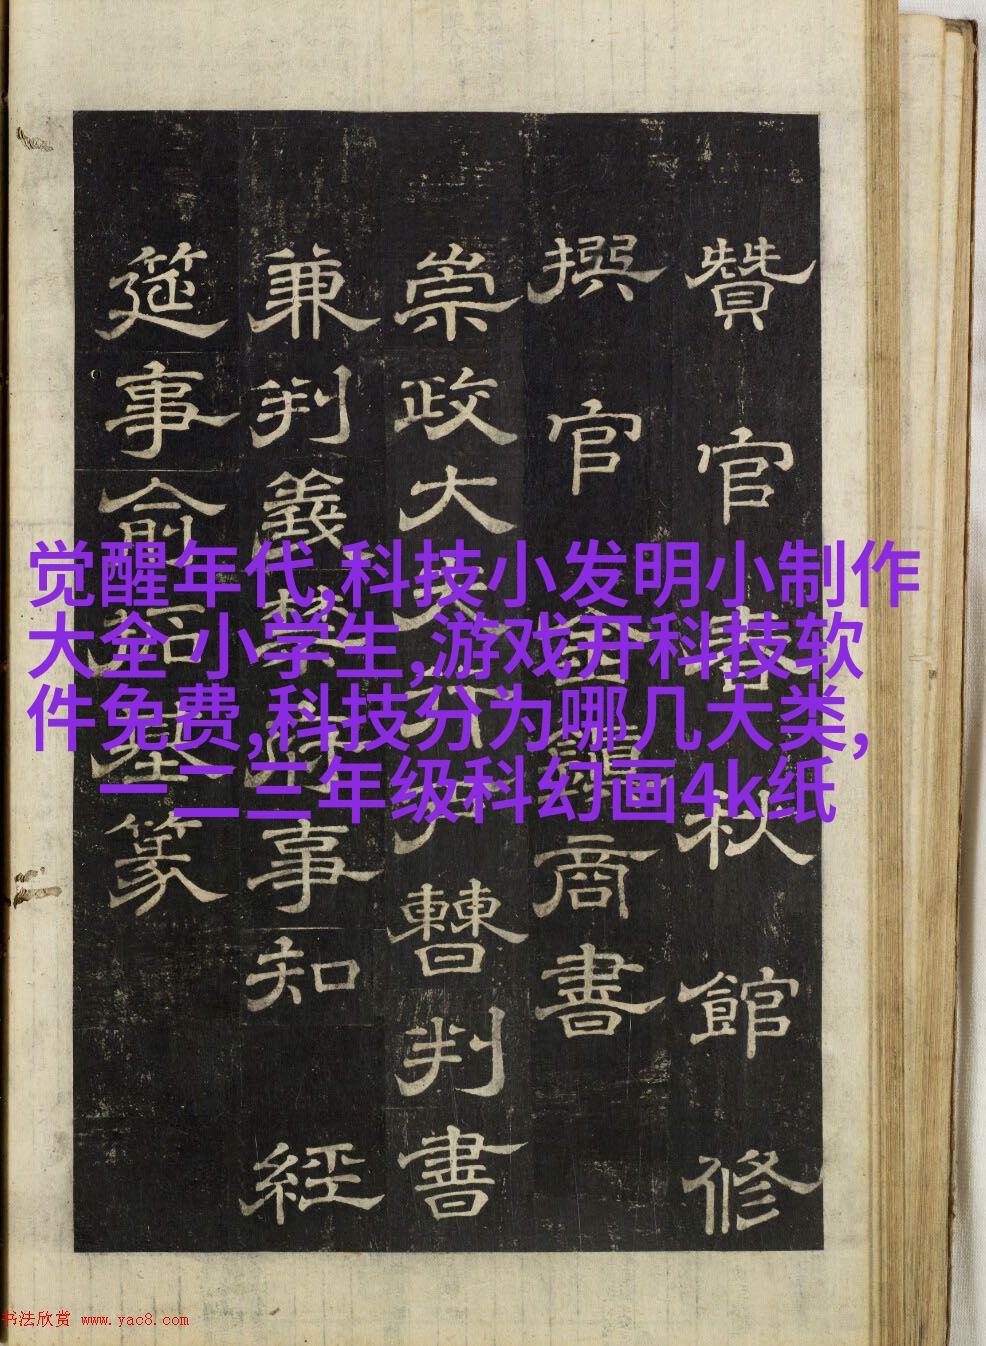 觉醒年代,科技小发明小制作
大全 小学生,游戏开科技软
件免费,科技分为哪几大类,
一二三年级科幻画4k纸
贊官春秋館修
撰官金商書
崇政大夫行戶曹判書
兼判義禁府事知經
筵事兪拓基篆
书法欣赏 www.yac8.com